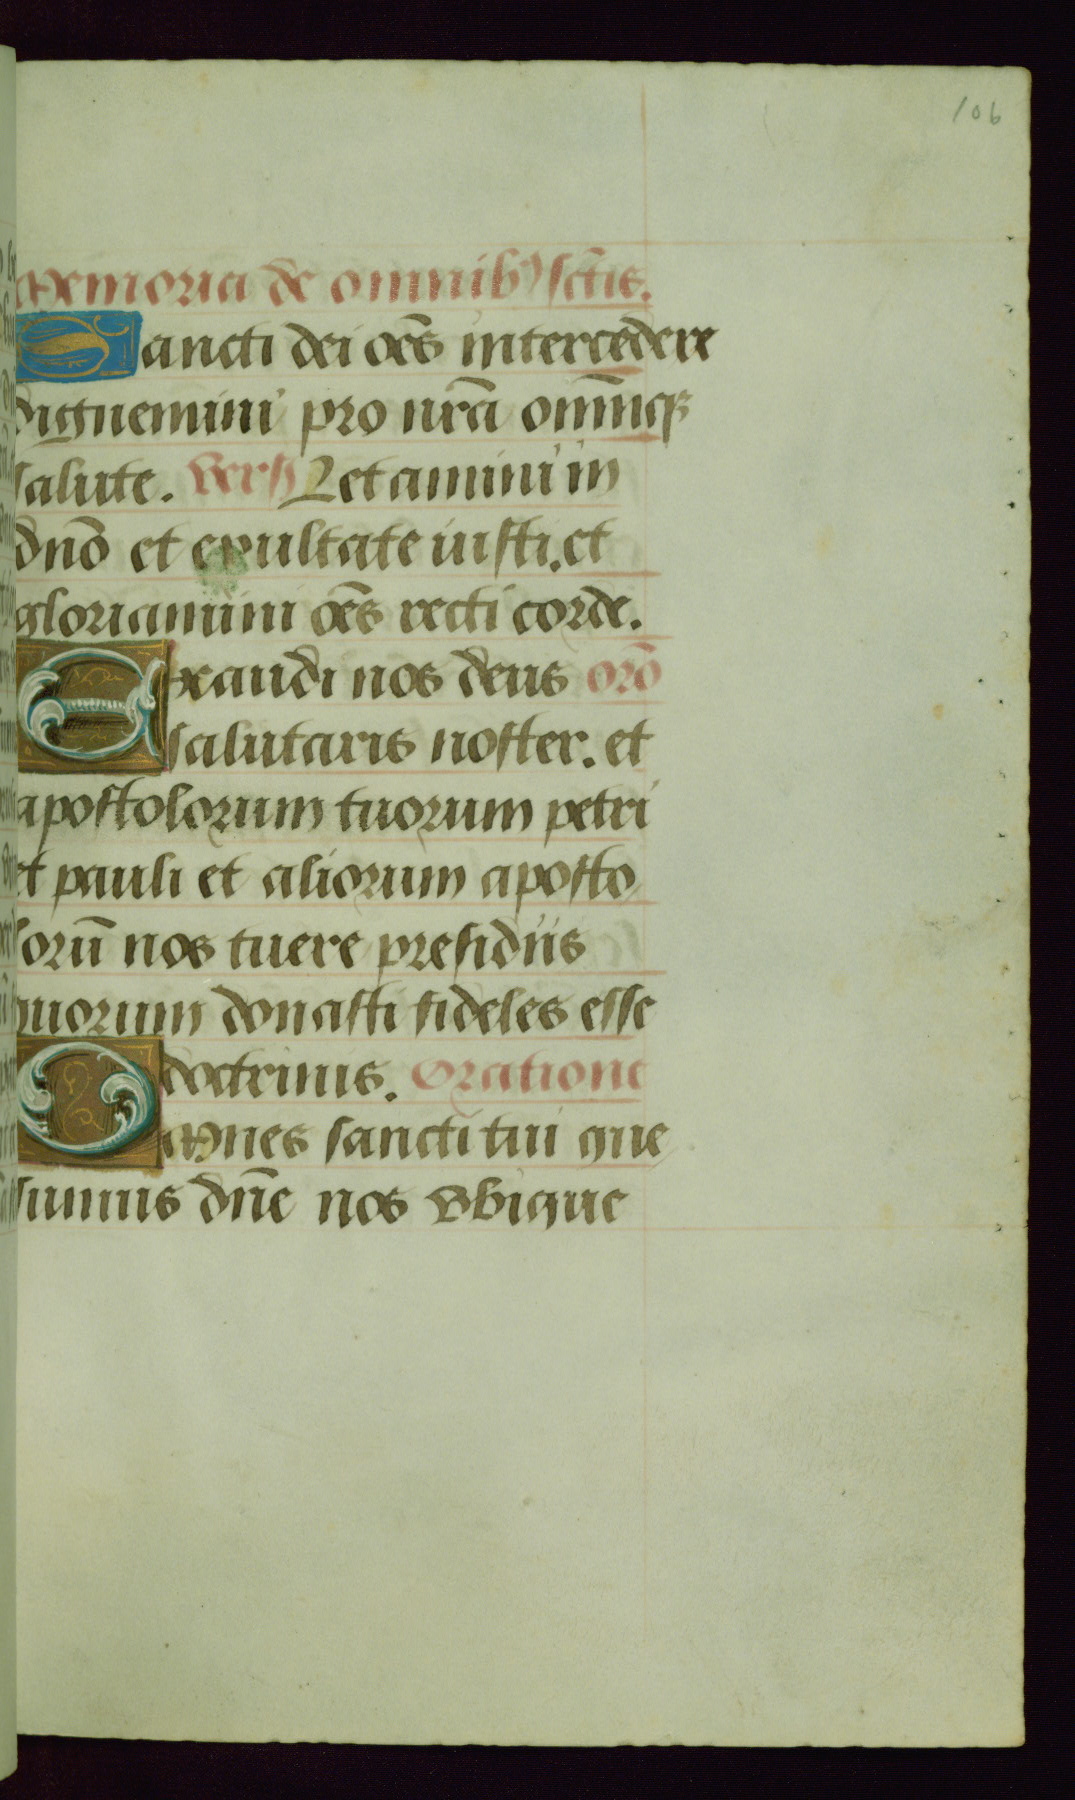 106
Memoria de omnibꝰ sctis.
Sancti dei oēs intercedere
dignemini pro nr̄a om̄niq̄ꝫ
salute. Vers Letamini in
dn̄o et exultate iusti. et
gloriamini oēs recti corde.
Exaudi nos deus or̄o
salutaris noster. et
apostolorum tuorum petri
et pauli et aliorum aposto
lorū nos tuere presidiis
quorum donasti fideles esse
doctrinis. Oratione
Omnes sancti tui que
sumus dn̄e nos vbique